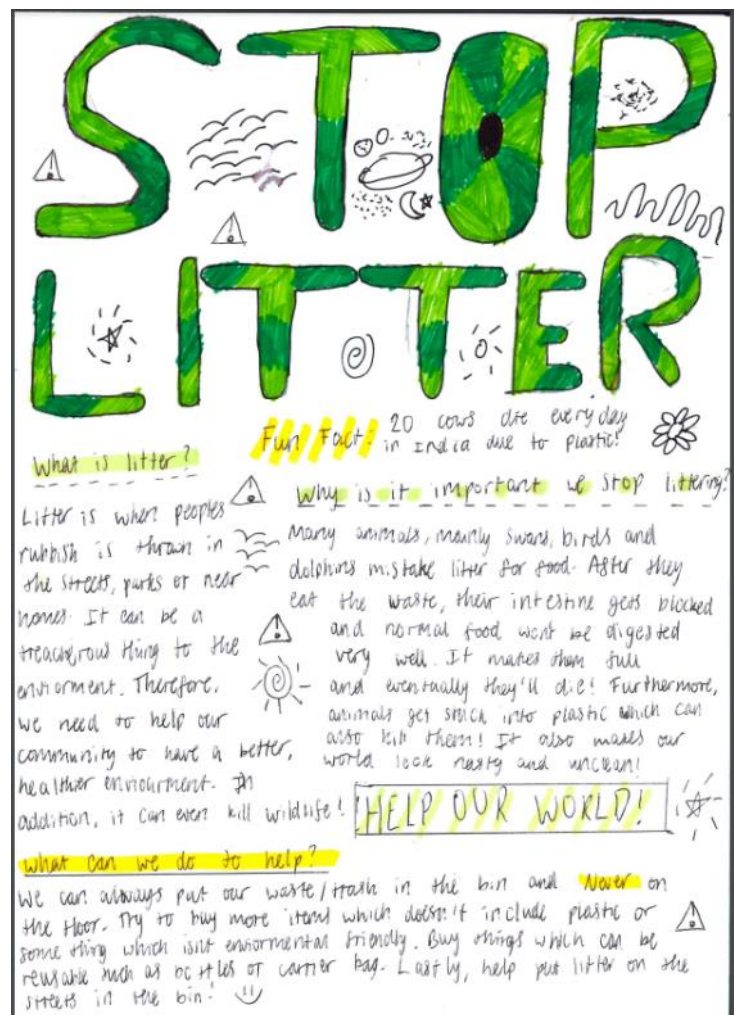 STOP
LITTER
Fun Fact: 20 cows die every day
in India due to plastic!
What is litter?
Litter is when peoples
rubbish is thrown in
the streets, parks or near
homes. It can be a
treacherous thing to the
enviorment. Therefore,
we need to help our
community to have a better,
healthier enviourment. In
addition, it can even kill wildlife!
Why is it important we stop littering?
Many animals, mainly swans, birds and
dolphins mistake litter for food. After they
eat the waste, their intestine gets blocked
and normal food wont be digested
very well. It makes them full
and eventually they'll die! Furthermore,
animals get stuck into plastic which can
also kill them! It also makes our
world look nasty and unclean!
HELP OUR WORLD!
What can we do to help?
We can always put our waste/trash in the bin and Never on
the floor. Try to buy more items which doesn't include plastic or
some thing which isnt enviormental friendly. Buy things which can be
reusable such as bottles or carrier bag. Lastly, help put litter on the
streets in the bin!